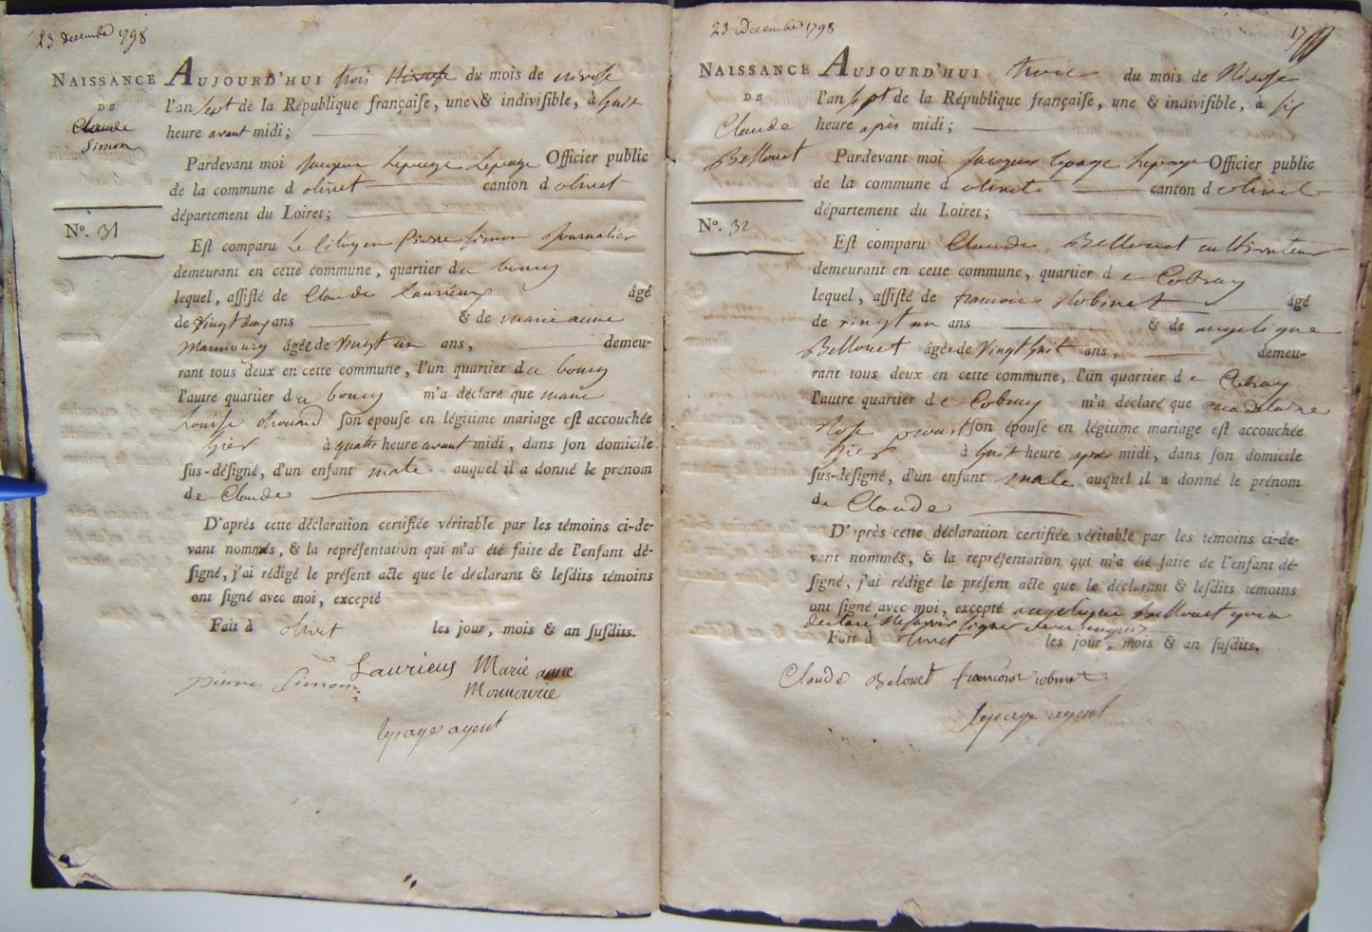 23 decembre 1798
NAISSANCE
DE
Claude
Simon
No. 31
AUJOURD'HUI trois Nivose du mois de nivose
l'an sept de la République françaiſe, une & indiviſible, à huit
heure avant midi;
Pardevant moi Jacques Lepage Lepage Officier public
de la commune d olivet canton d olivet
département du Loiret;
Eſt comparu le Citoyen Pierre Simon Journalier
demeurant en cette commune, quartier du bourg
lequel, aſſiſté de Claude Laurieux âgé
de vingt ans & de marie anne
âgée de vingt un ans, demeu-
rant tous deux en cette commune, l'un quartier du bourg
l'autre quartier du bourg m'a déclaré que marie
Louise ſon épouse en légitime mariage eſt accouchée
hier à quatre heure avant midi, dans ſon domicile
ſus-déſigné, d'un enfant male auquel il a donné le prénom
de Claude
D'après cette déclaration certifiée véritable par les témoins ci-de-
vant nommés, & la repréſentation qui m'a été faite de l'enfant dé-
ſigné, j'ai rédigé le préſent acte que le déclarant & leſdits témoins
ont ſigné avec moi, excepté
Fait à olivet les jour, mois & an ſuſdits.
pierre Simon Laurieus Marie anne
Monmourie
lepage agent
23 Decembre 1798
17
NAISSANCE
DE
Claude
Bellouet
No. 32
AUJOURD'HUI trois du mois de Nivose
l'an sept de la République françaiſe, une & indiviſible, à six
heure après midi;
Pardevant moi Jacques lepage Lepage Officier public
de la commune d olivet canton d olivet
département du Loiret;
Eſt comparu Claude Bellouet cultivateur
demeurant en cette commune, quartier d e Cobray
lequel, aſſiſté de francois Robinet âgé
de vingt un ans & de angelique
Bellouet âgée de vingt huit ans, demeu-
rant tous deux en cette commune, l'un quartier d e Cobray
l'autre quartier d e Cobray m'a déclaré que madelaine
Rose proust ſon épouse en légitime mariage eſt accouchée
hier à huit heure après midi, dans ſon domicile
ſus-deſigné, d'un enfant male auquel il a donné le prénom
de Claude
D'après cette déclaration certifiée véritable par les témoins ci-de-
vant nommés, & la repréſentation qui m'a été faite de l'enfant dé-
ſigné, j'ai rédigé le préſent acte que le déclarant & leſdits témoins
ont ſigné avec moi, excepté angelique Bellouet qui a
declaré ne savoir signer
Fait à olivet les jour, mois & an ſuſdits.
Claude Belouet francois robinet
lepage agent